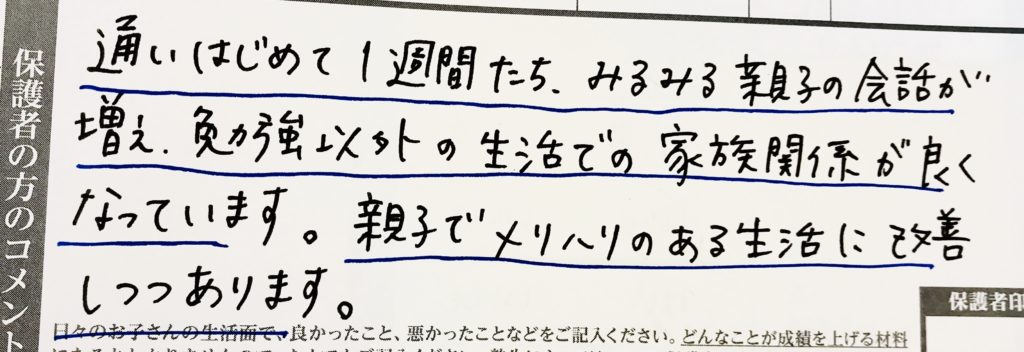 保護者の方のコメント
通いはじめて1週間たち、みるみる親子の会話が
増え、勉強以外の生活での家族関係が良く
なっています。親子でメリハリのある生活に改善
しつつあります。
保護者印
日々のお子さんの生活面で、良かったこと、悪かったことなどをご記入ください。どんなことが成績を上げる材料